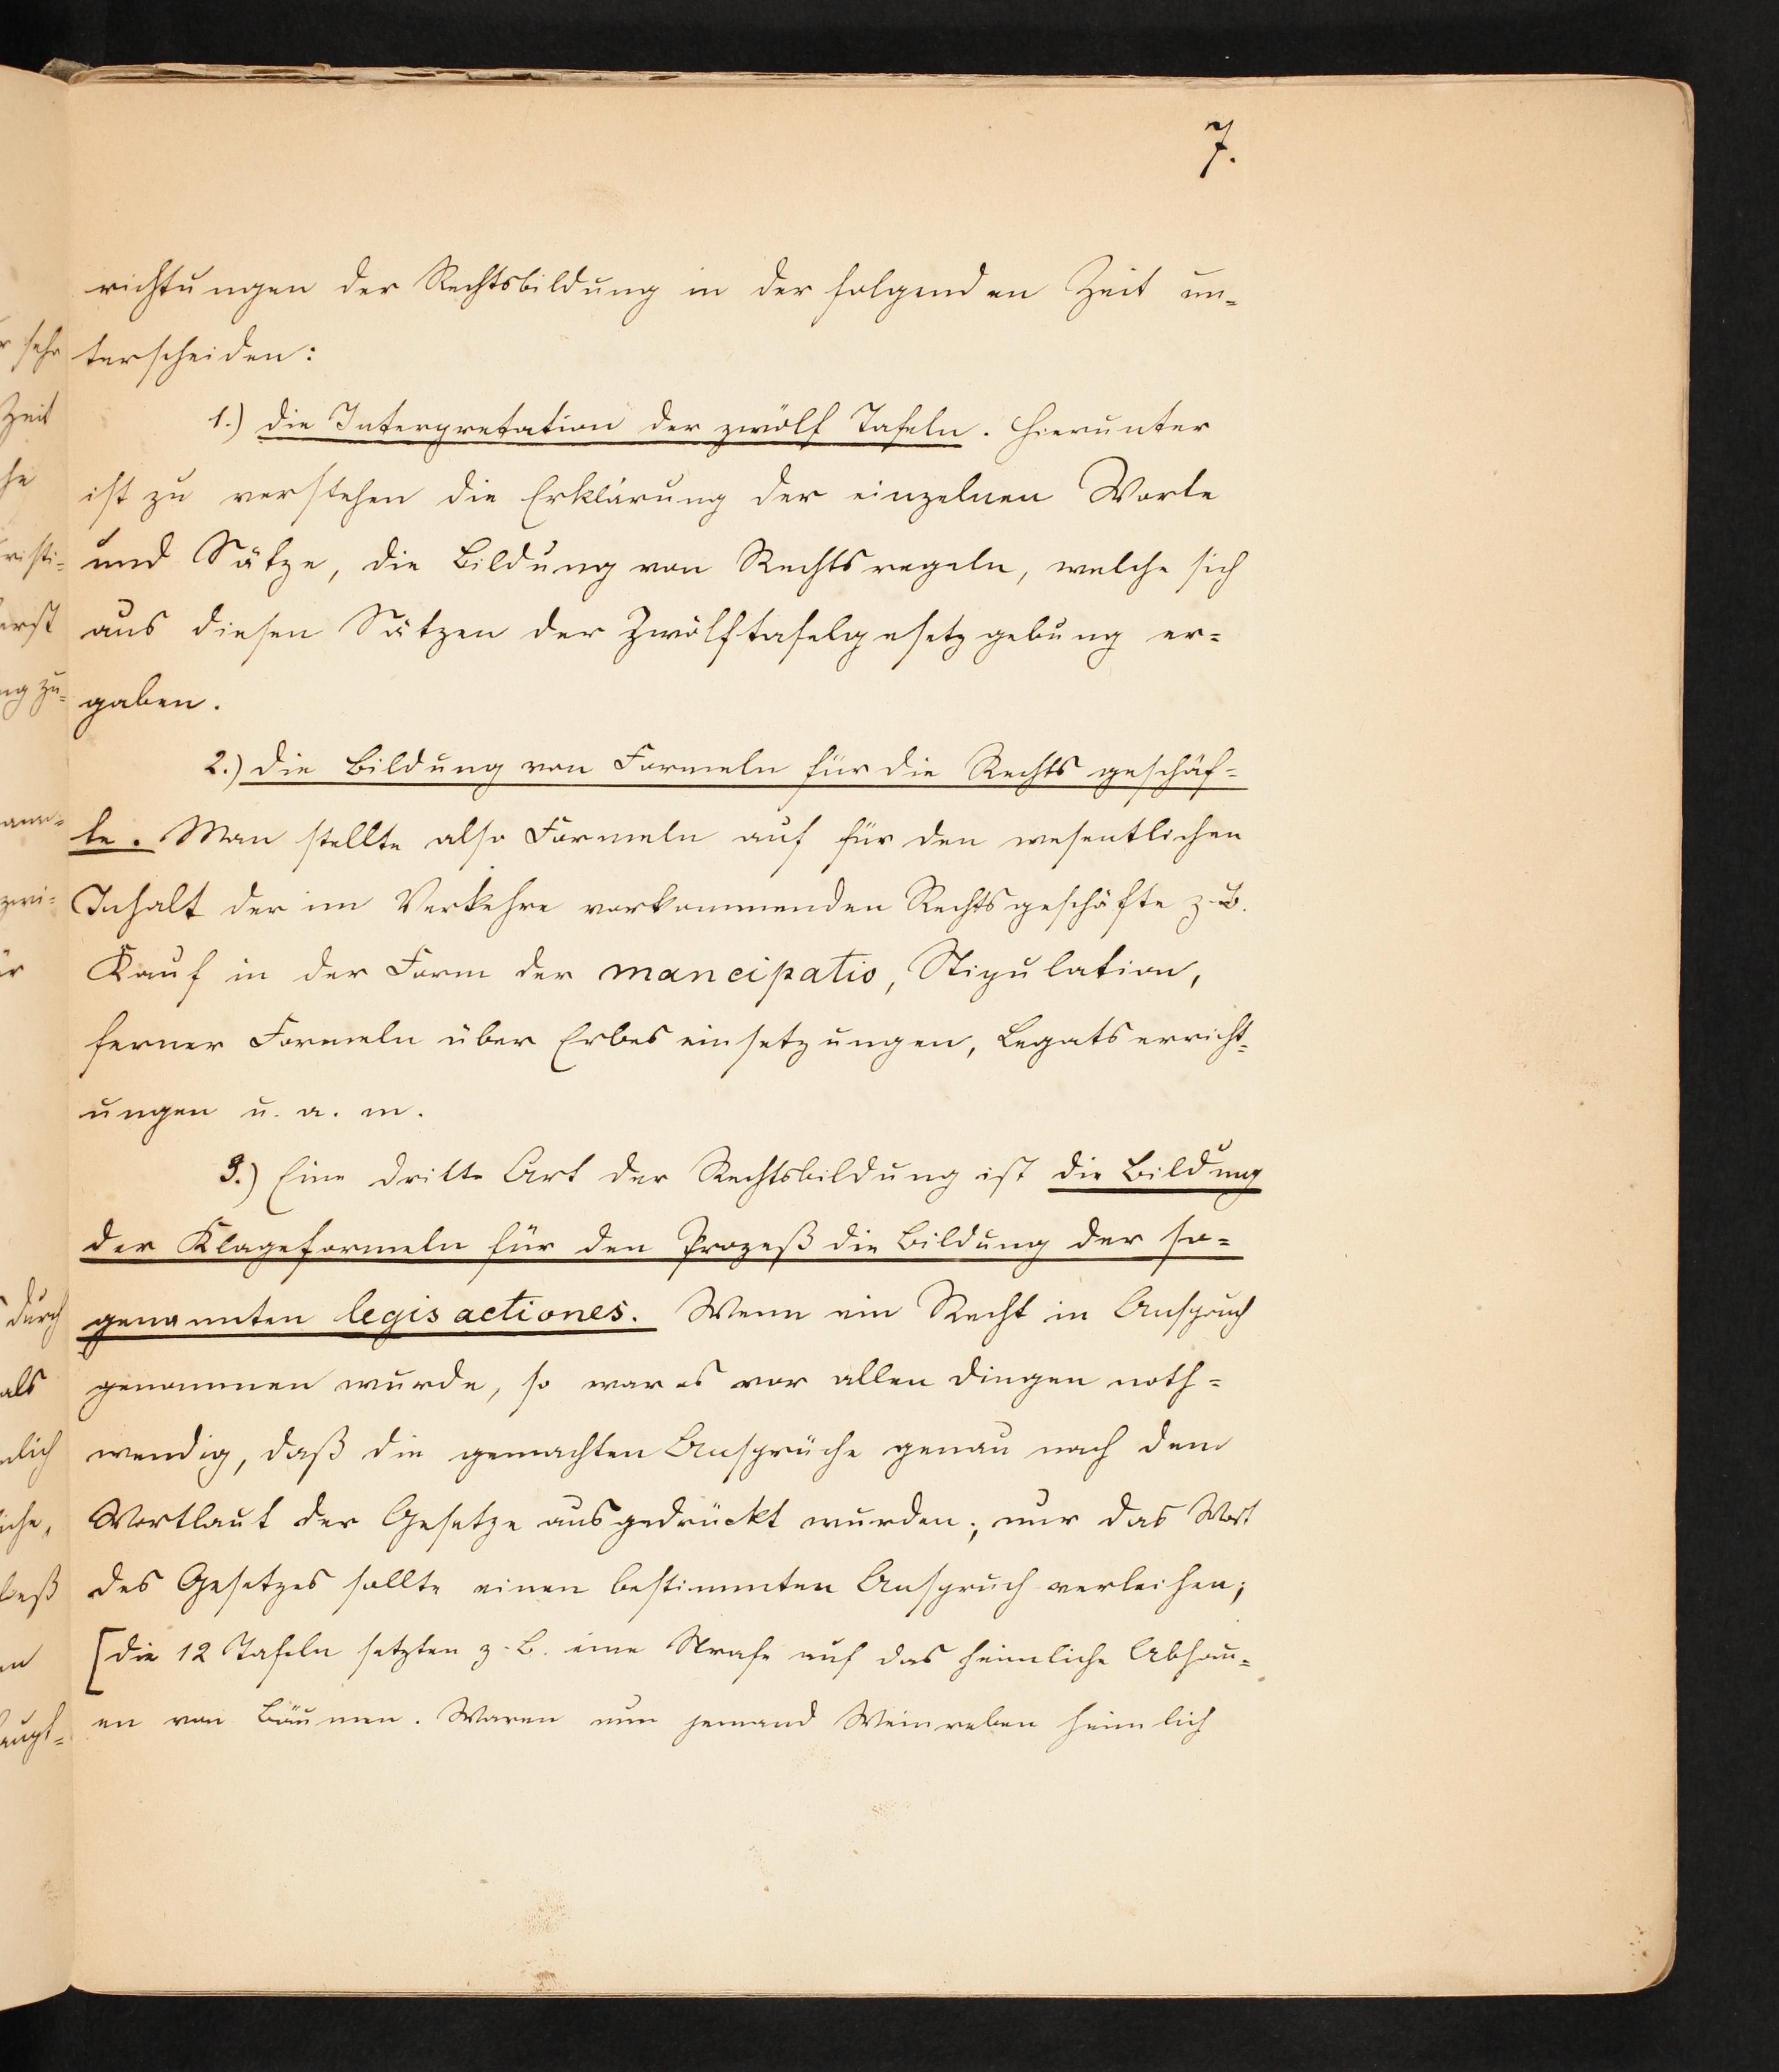 7.
richtungen der Rechtsbildung in der folgenden Zeit un-
terscheiden:
1.) die Interpretation der zwölf Tafeln. Hierunter
ist zu verstehen die Erklärung der einzelnen Worte
und Sätze, die Bildung von Rechtsregeln, welche sich
aus diesen Sätzen der Zwölftafelgesetzgebung er-
gaben.
2.) die Bildung von Formeln für die Rechtsgeschäf-
te. Man stellte also Formeln auf für den wesentlichen
Inhalt der im Verkehre vorkommenden Rechtsgeschäfte z. B.
Kauf in der Form der mancipatio, Stipulation,
ferner Formeln über Erbeseinsetzungen, Legatserricht-
ungen u. a. m.
3.) Eine dritte Art der Rechtsbildung ist die Bildung
der Klageformeln für den Prozeß die Bildung der so-
genannten legis actiones. Wenn ein Recht in Anspruch
genommen wurde, so war es vor allen Dingen noth-
wendig, daß die gemachten Ansprüche genau nach dem
Wortlaut der Gesetze ausgedrückt wurden; nur das Wort
des Gesetzes sollte einen bestimmten Anspruch verleihen;
[die 12 Tafeln setzten z. B. eine Strafe auf das heimliche Abhau-
en von Bäumen. Waren nun jemand Weinreben heimlich